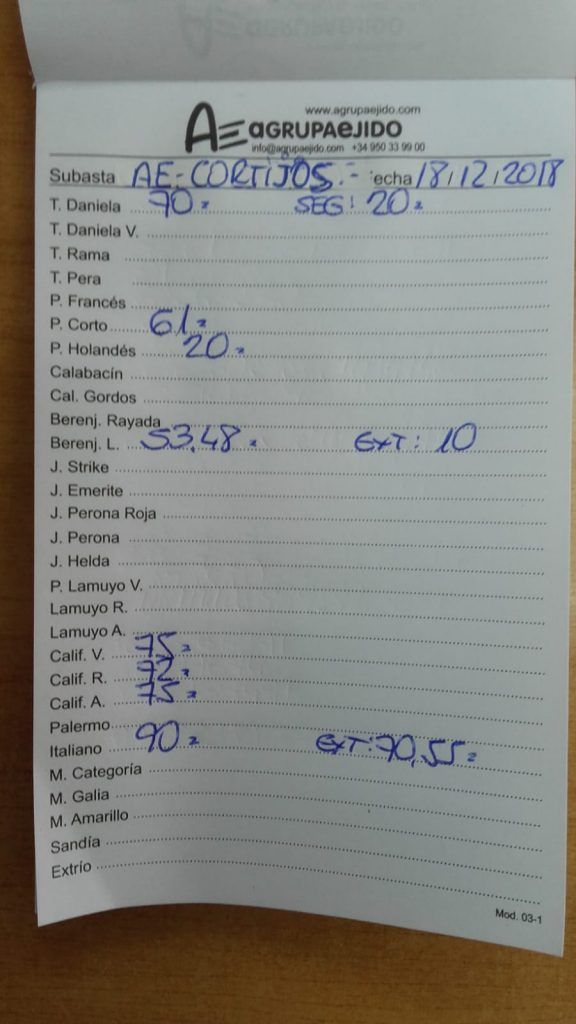 www.agrupaejido.com
AE AGRUPAEJIDO
info@agrupaejido.com +34 950 33 99 00
Subasta AE-CORTIJOS.- echa 18,12,2018
T. Daniela 70 SEG: 20
T. Daniela V.
T. Rama
T. Pera
P. Francés
P. Corto 61
P. Holandés 20
Calabacín
Cal. Gordos
Berenj. Rayada
Berenj. L. 53,48 EXT: 10
J. Strike
J. Emerite
J. Perona Roja
J. Perona
J. Helda
P. Lamuyo V.
Lamuyo R.
Lamuyo A.
Calif. V. 75
Calif. R. 72
Calif. A. 75
Palermo
Italiano 90 EXT: 70,55
M. Categoría
M. Galia
M. Amarillo
Sandía
Extrío
Mod. 03-1